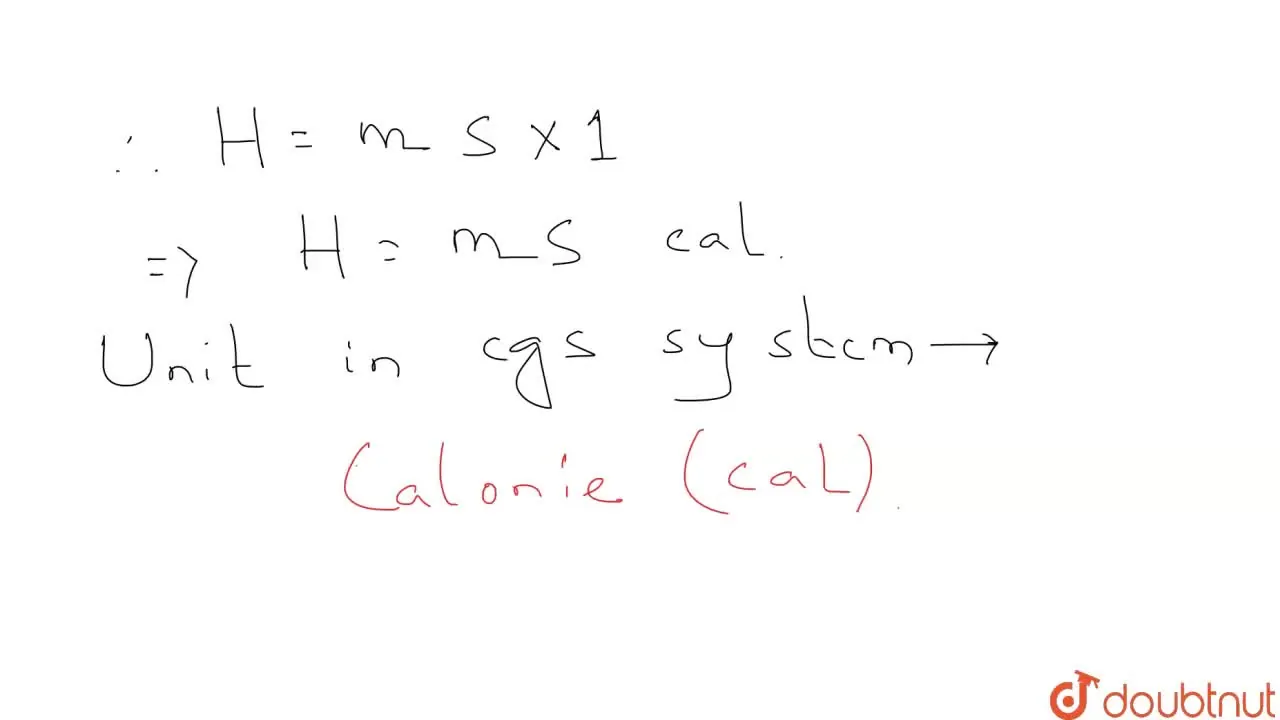 ∴ H = m s × 1
=> H = m s cal.
Unit in cgs system →
Calorie (cal).
doubtnut